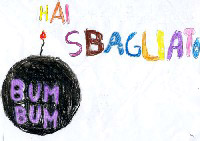 HAI
SBAGLIATO
BUM
BUM